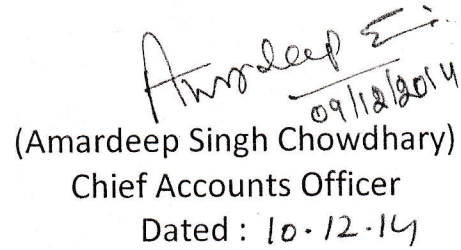 Amardeep Si.
09/12/2014
(Amardeep Singh Chowdhary)
Chief Accounts Officer
Dated : 10.12.14